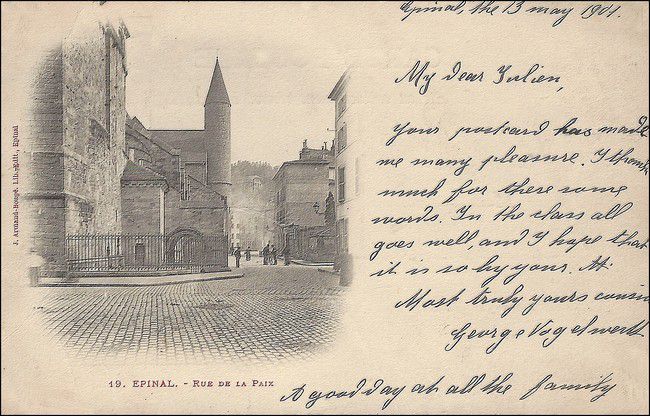 Epinal, the 13 may 1901.
My dear Julien,
Your postcard has made
me many pleasure. I thank
much for there some
words. In the class all
goes well, and I hope that
it is so by your. At
Most truly yours cousin
George Vogelweith
A good day at all the family
J. Armand-Bougé, Lib.-édit., Epinal
19. EPINAL. - RUE DE LA PAIX